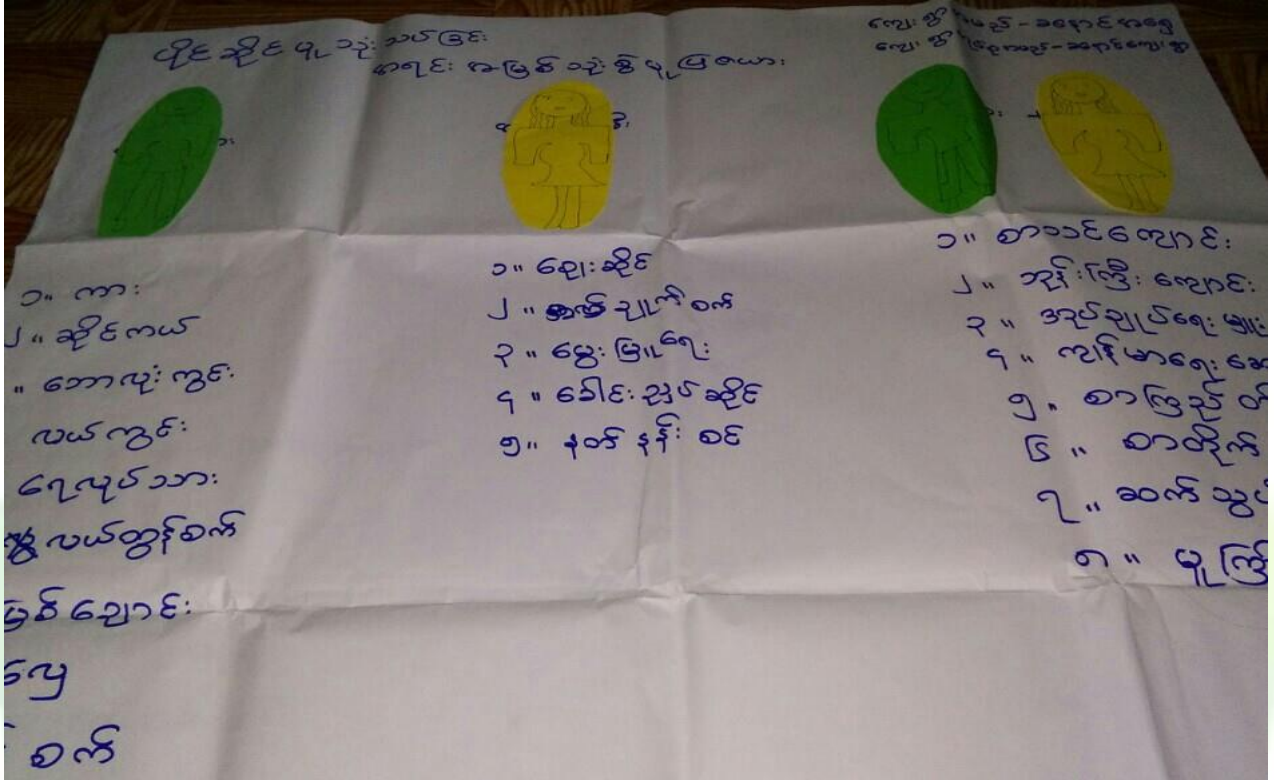 ပိုင်ဆိုင်မှု သုံးသပ်ခြင်း
အရင်းအမြစ်သုံးစွဲမှုပြဇယား
ကျေးရွာ
ကျေးရွာ
၁။ ကား
၂။ ဆိုင်ကယ်
။ ဘောလုံးကွင်း
လယ်ကွင်း
ရေလုပ်သား
လယ်ထွန်စက်
မြစ်ချောင်း
လှေ
စက်
၁။ ဈေးဆိုင်
၂။ စက်ချုပ်စက်
၃။ မွေးမြူရေး
၄။ ခေါင်းညှပ်ဆိုင်
၅။ နတ်နန်းစင်
၁။ စာသင်ကျောင်း
၂။ ဘုန်းကြီးကျောင်း
၃။ အုပ်ချုပ်ရေးမှူး
၄။ ကျန်းမာရေး
၅။ စာကြည့်တိ
၆။ စာတိုက်
၇။ ဆက်သွယ်
၈။ မူကြို